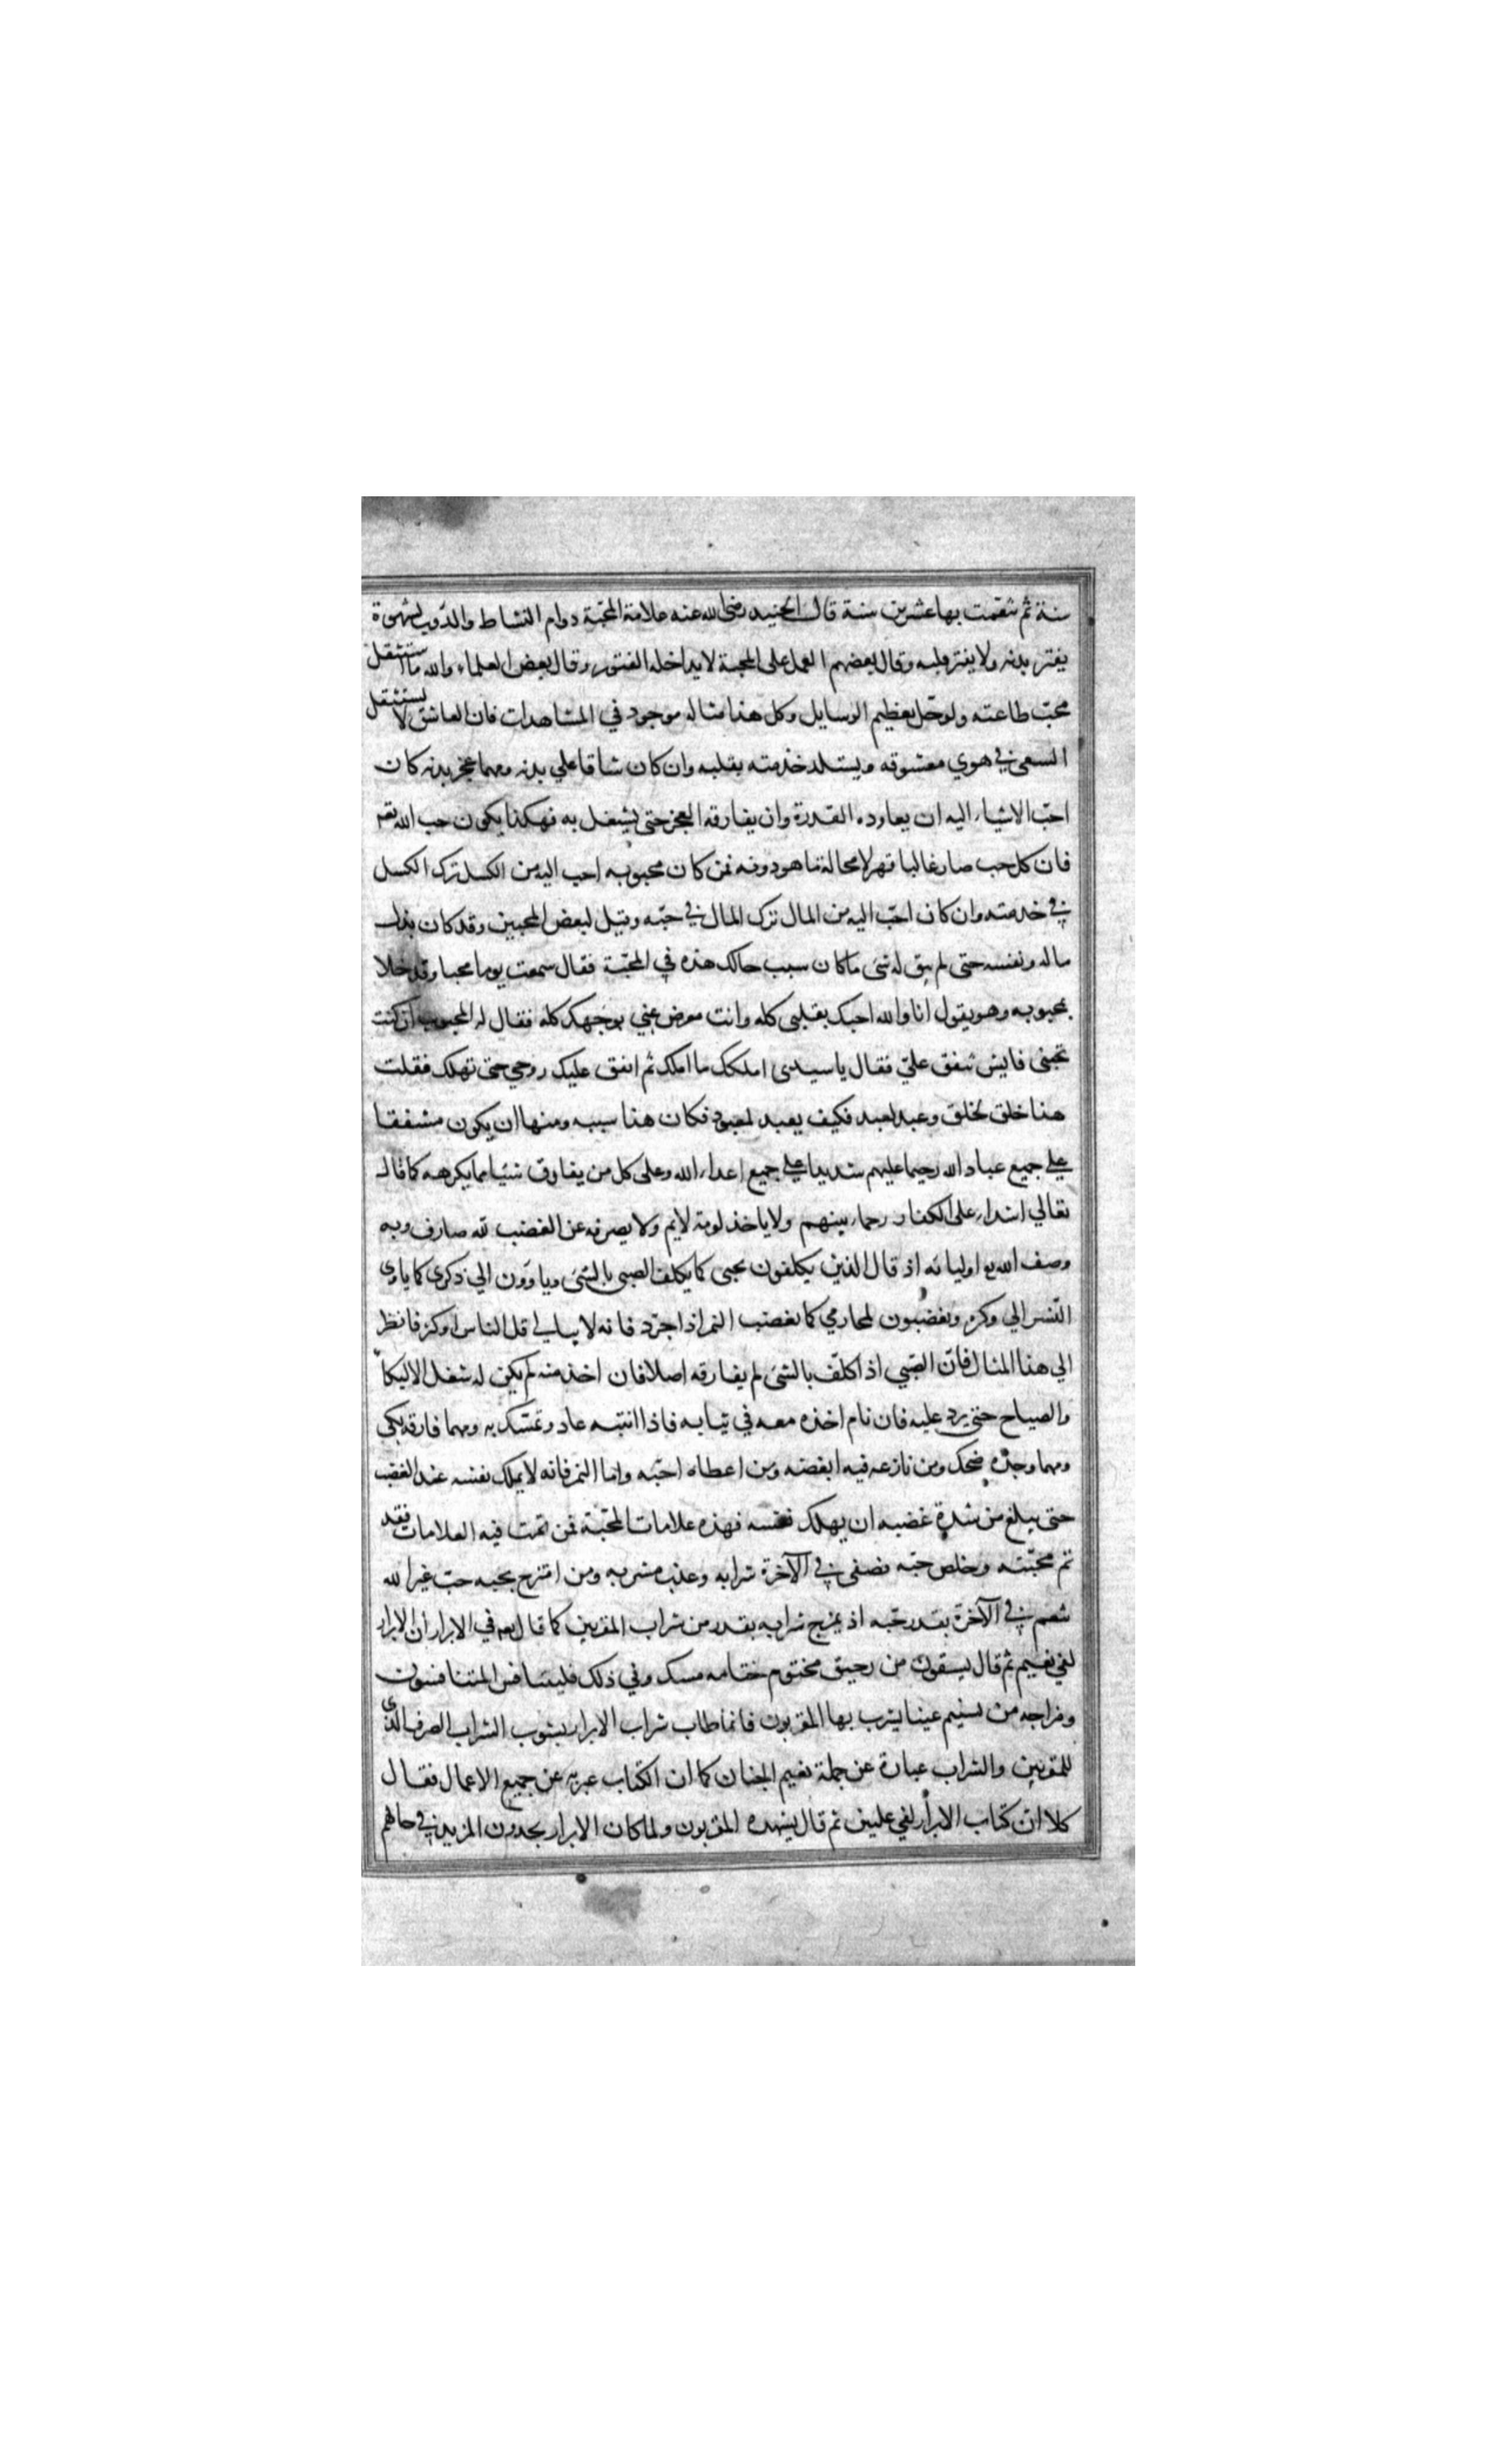 سنة ثم تنعّمت بها عشرين سنة قال الجنيد رضى الله عنه علامة المحبّة دوام النشاط والدّوب بشهوة
يفتر بدنه ولا يفتر قلبه وقال بعضهم العمل على المحبة لا يداخله الفتور وقال بعض العلماء والله ما استثقل
محبّ طاعته ولو حّل بعظيم الوسايل وكل هذا مثاله موجود في المشاهدات فان العاشق لا يستثقل
السعى في هوي معشوقه ويستلذ خدمته بقلبه وان كان شاقا علي بدنه ومهما عجز بدنه كان
احبّ الاشياء اليه ان يعاوده القدرة وان يفارقه العجز حتى يشتغل به فهكذا يكون حب الله تعه
فان كل حب صار غالبا قهر لا محالة ما هو دونه فمن كان محبوبه احب اليه من الكسل ترك الكسل
في خدمته وان كان احبّ اليه من المال ترك المال في حبّه وقيل لبعض المحبين وقد كان بذل
ماله ونفسه حتى لم يبق له شى ما كان سبب حالك هذه في المحبّة فقال سمعت يوما محبا وقد خلا
بمحبوبه وهو يقول انا والله احبك بقلبى كله وانت معرض عني بوجهك كله فقال له المحبوب ان كنت
تحبنى فايش تنفق عليّ فقال يا سيدى املكك ما املك ثم انفق عليك روحي حتى تهلك فقلت
هذا خلق لخلق وعبد لعبد فكيف يعبد لمعبود فكان هذا سببه ومنها ان يكون مشفقا
علي جميع عباد الله رحيما عليهم شديدا علي جميع اعداء الله وعلى كل من يفارق شيئا مما يكرهه كما قال
تعالي اشداء على الكفار رحماء بينهم ولا ياخذ لومة لايم ولا يصرفه عن الغضب لله صارف وبه
وصف الله تع اوليائه اذ قال الذين يكلفون بحبى كما يكلف الصبى بالشئ وياوون الي ذكرى كما ياوى
النّسر الي وكره ويغضبون لمحارمي كما يغضب النمر اذا اجرد فانه لا يبالى اقل الناس او كثر فانظر
الي هذا المثال فانّ الصّبي اذا كلف بالشئ لم يفارقه اصلا فان اخذ منه لم يكن له شغل الا البكآ
والصياح حتى يرد عليه فان نام اخذه معه في ثيابه فاذا انتبه عاد وتمسّك به ومهما فارقه بكي
ومهما وجده ضحك ومن نازعه فيه ابغضه ومن اعطاه احبّه واما النمر فانه لا يملك نفسه عند الغضب
حتى يبلغ من شدة غضبه ان يهلك نفسه فهذه علامات المحبّة فمن تمت فيه العلامات فقد
تم محبّته وخلص حبّه فصفى في الآخرة شرابه وعذب مشربه ومن امتزج بحبه حبّ غير الله
تنعم في الآخرة بقدر حبّه اذ يمزج شرابه بقدر من شراب المقربين كما قال تعه في الابرار ان الابرار
لفي نعيم ثم قال يسقون من رحيق مختوم ختامه مسك وفي ذلك فليتنافس المتنافسون
ومزاجه من تسنيم عينا يشرب بها المقربون فانما طاب شراب الابرار بشوب الشراب الصرف الذى
للمقربين والشراب عبارة عن جملة نعيم الجنان كما ان الكتاب عبر به عن جميع الاعمال فقال
كلا ان كتاب الابرار لفي عليين ثم قال يشهده المقربون ولما كان الابرار يجدون المزيد في حالهم